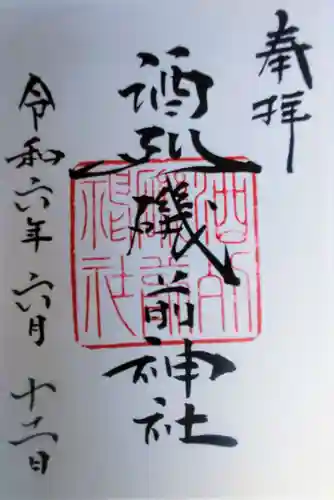 奉拝
酒列磯前神社
酒列
磯前
神社
令和六年 六月 十二日